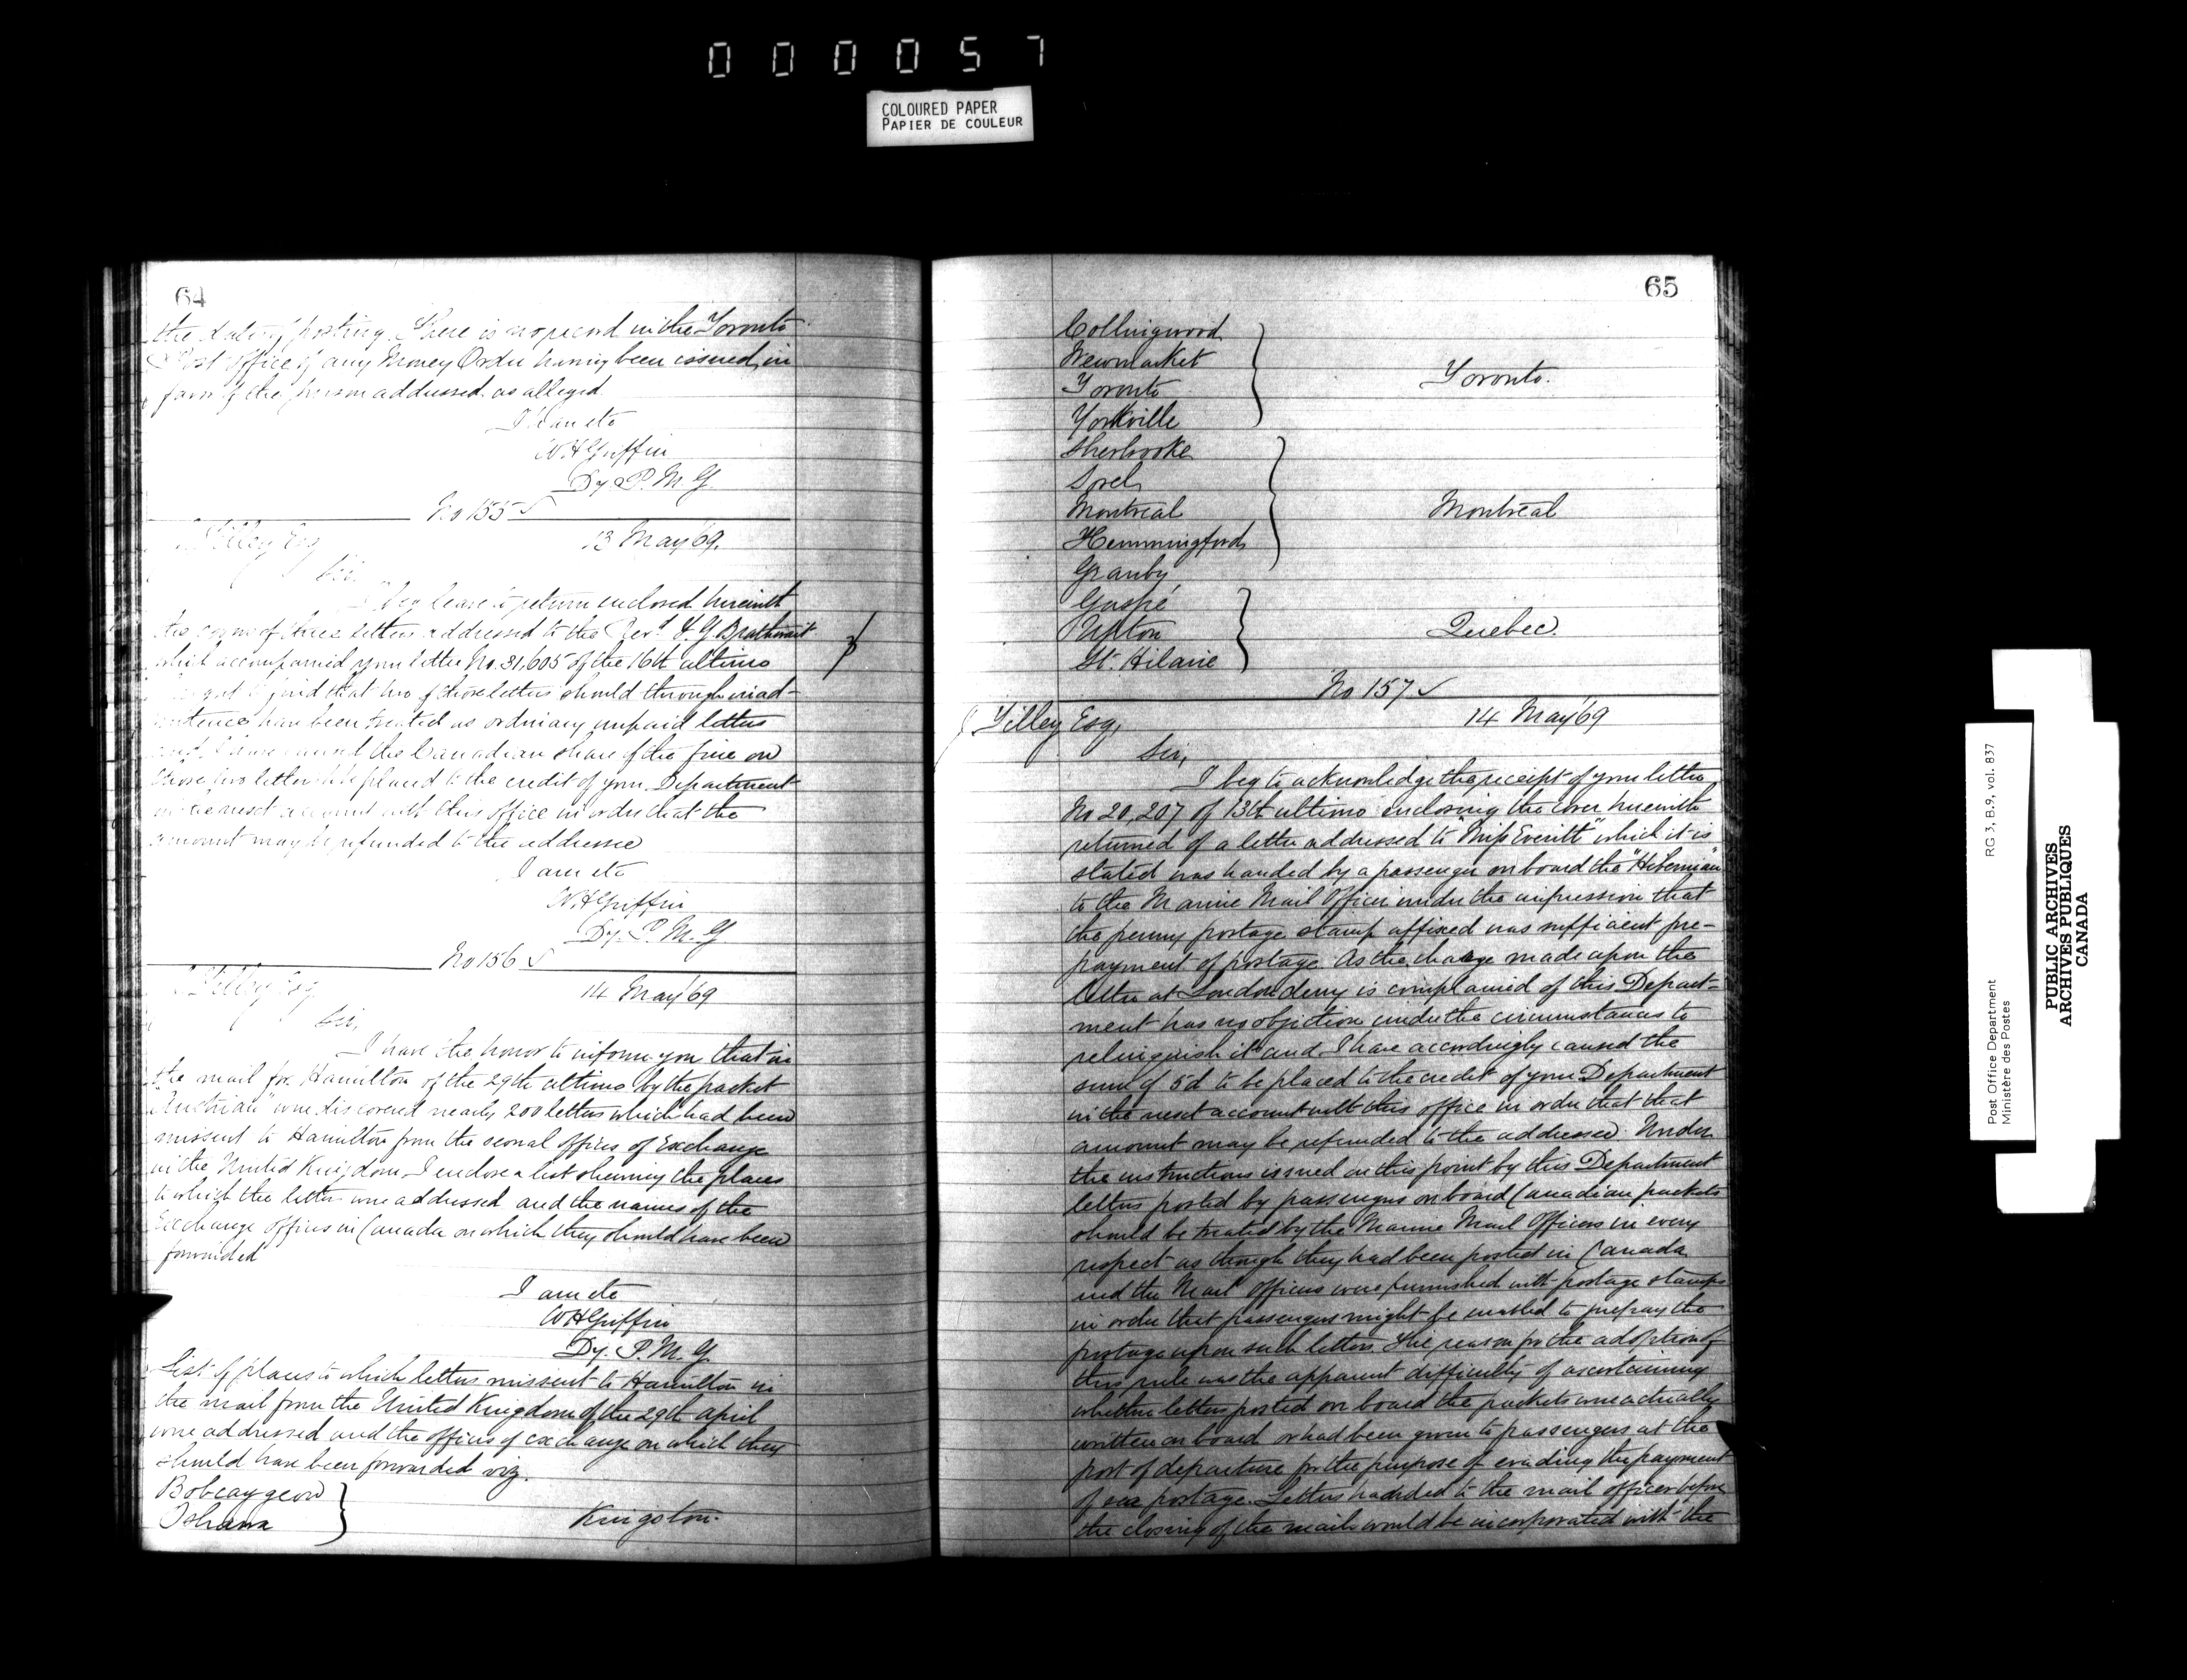 000057
COLOURED PAPER
PAPIER DE COULEUR
64
the date of posting. There is no record in the Toronto
Post Office of any Money Order having been issued in
favor of the person addressed as alleged.
I am etc
WHGriffin
Dy. P. M. G.
No 155 ✓
Tilley Esq
13 May '69.
Sir,
I beg leave to return enclosed herewith
the covers of three letters addressed to the Revd. F. G.
which accompanied your letter No. 31,605 of the 16th ultimo
I regret to find that two of those letters should through inad-
vertence have been treated as ordinary unpaid letters
and I have caused the Canadian share of the fine on
those two letters to be placed to the credit of your Department
in the next account with this office in order that the
amount may be refunded to the addressee
I am etc
WHGriffin
Dy. P. M. G
No 156 ✓
Tilley Esq
14 May '69
Sir,
I have the honor to inform you that in
the mail for Hamilton of the 29th ultimo by the packet
"Austrian" were discovered nearly 200 letters which had been
missent to Hamilton from the several offices of Exchange
in the United Kingdom. I enclose a list shewing the places
to which the letters were addressed and the names of the
Exchange offices in Canada on which they should have been
forwarded
I am etc
WHGriffin
Dy. P. M. G.
List of places to which letters missent to Hamilton in
the mail from the United Kingdom of the 29th April
were addressed and the offices of exchange on which they
should have been forwarded viz.
Bobcaygeon
Oshawa
Kingston.
65
Collingwood
Newmarket
Toronto
Yorkville
Toronto.
Sherbrooke
Sorel
Montreal
Hemmingford
Granby
Montreal
Gaspé
Upton
St. Hilaire
Quebec.
No 157 ✓
J Tilley Esq,
14 May '69
Sir,
I beg to acknowledge the receipt of your letter
No 20,207 of 13th ultimo enclosing the cover herewith
returned of a letter addressed to "Miss Everitt" which it is
stated was handed by a passenger on board the "Hibernian"
to the Marine Mail Officer under the impression that
the penny postage stamp affixed was sufficient pre-
payment of postage. As the charge made upon the
letter at Londonderry is complained of this Depart-
ment has no objection under the circumstances to
relinquish it and I have accordingly caused the
sum of 5d to be placed to the credit of your Department
in the next account with this office in order that that
amount may be refunded to the addressee. Under
the instructions issued on this point by this Department
letters posted by passengers on board Canadian packets
should be treated by the Marine Mail Officers in every
respect as though they had been posted in Canada
and the Mail Officers were furnished with postage stamps
in order that passengers might be enabled to prepay the
postage upon such letters. The reason for the adoption of
this rule was the apparent difficulty of ascertaining
whether letters posted on board the packets were actually
written on board or had been given to passengers at the
port of departure for the purpose of evading the payment
of sea postage. Letters handed to the mail officer before
the closing of the mails would be incorporated with the
Post Office Department
Ministère des Postes
RG 3, B.9, vol. 837
PUBLIC ARCHIVES
ARCHIVES PUBLIQUES
CANADA